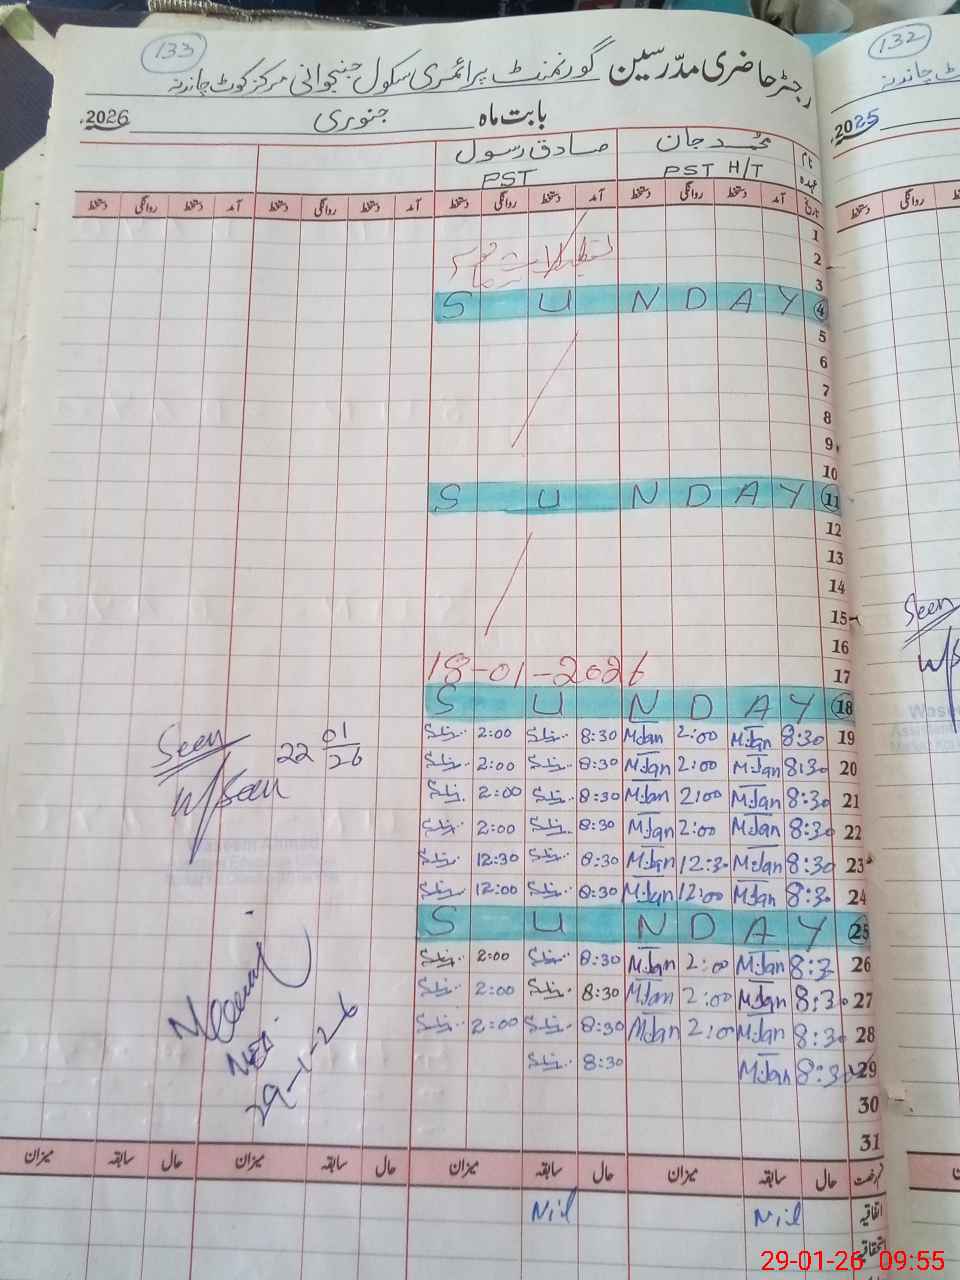 133
رجسٹر حاضری مدرسین گورنمنٹ پرائمری سکول جنجوانی مرکز کوٹ چاندنہ
بابت ماہ جنوری 2026ء
نام محمد جان صادق رسول
عہدہ PST H/T PST
تاریخ آمد دستخط روانگی دستخط آمد دستخط روانگی دستخط آمد دستخط روانگی دستخط آمد دستخط روانگی دستخط
1
2
3
S U N D A Y 4
5
6
7
8
9
10
S U N D A Y 11
12
13
14
15
16
17
18-01-2026
S U N D A Y 18
2:00 8:30 M.Jan 2:00 M.Jan 8:30 19
2:00 8:30 M.Jan 2:00 M.Jan 8:30 20
2:00 8:30 M.Jan 2:00 M.Jan 8:30 21
2:00 8:30 M.Jan 2:00 M.Jan 8:30 22
12:30 8:30 M.Jan 12:30 M.Jan 8:30 23
12:00 8:30 M.Jan 12:00 M.Jan 8:30 24
S U N D A Y 25
2:00 8:30 M.Jan 2:00 M.Jan 8:30 26
2:00 8:30 M.Jan 2:00 M.Jan 8:30 27
2:00 8:30 M.Jan 2:00 M.Jan 8:30 28
8:30 M.Jan 8:30 29
30
31
Seen 22 01/26
29-1-26
حال سابقہ میزان حال سابقہ میزان حال سابقہ میزان حال سابقہ میزان
اتفاقیہ Nil Nil
استحقاقیہ
132
2025ء
روانگی دستخط
Seen
29-01-26 09:55